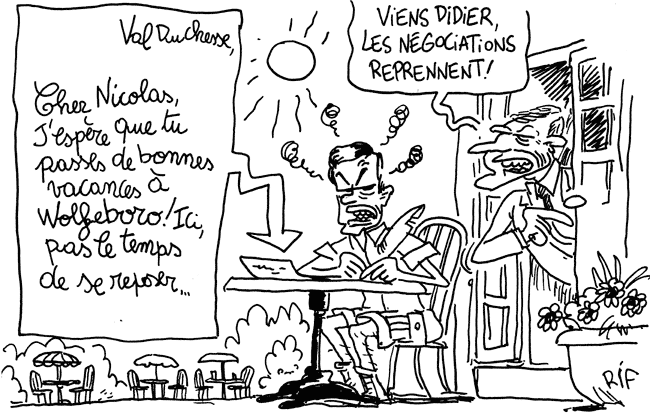 Val Duchesse,
Cher Nicolas,
J'espère que tu
passes de bonnes
vacances à
Wolfeboro! Ici,
pas le temps
de se reposer...
VIENS DIDIER,
LES NÉGOCIATIONS
REPRENNENT!
RIF